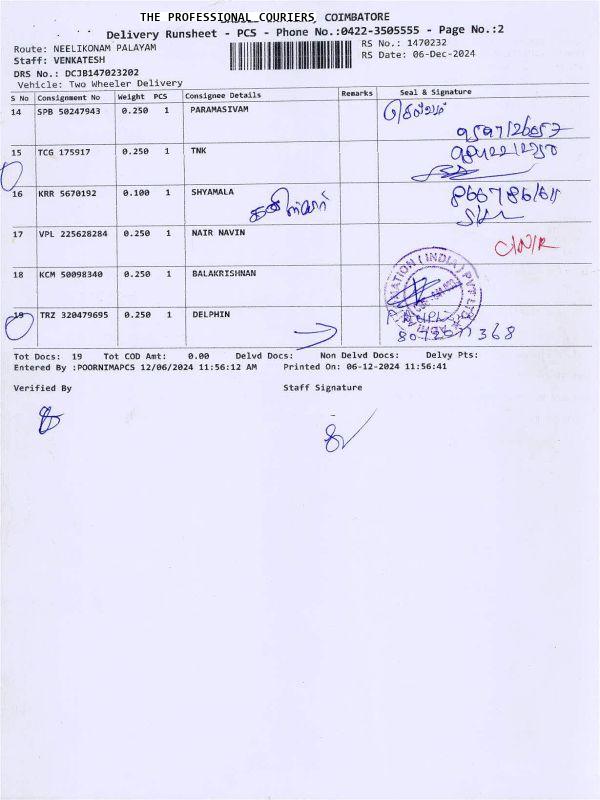 THE PROFESSIONAL COURIERS, COIMBATORE
Delivery Runsheet - PCS - Phone No.:0422-3505555 - Page No.:2
Route: NEELIKONAM PALAYAM
RS No.: 1470232
Staff: VENKATESH
RS Date: 06-Dec-2024
DRS No.: DCJB147023202
Vehicle: Two Wheeler Delivery
S No Consignment No Weight PCS Consignee Details Remarks Seal & Signature
14 SPB 50247943 0.250 1 PARAMASIVAM
15 TCG 175917 0.250 1 TNK
16 KRR 5670192 0.100 1 SHYAMALA
17 VPL 225628284 0.250 1 NAIR NAVIN
18 KCM 50098340 0.250 1 BALAKRISHNAN
19 TRZ 320479695 0.250 1 DELPHIN
Tot Docs: 19 Tot COD Amt: 0.00 Delvd Docs: Non Delvd Docs: Delvy Pts:
Entered By :POORNIMAPCS 12/06/2024 11:56:12 AM Printed On: 06-12-2024 11:56:41
Verified By Staff Signature